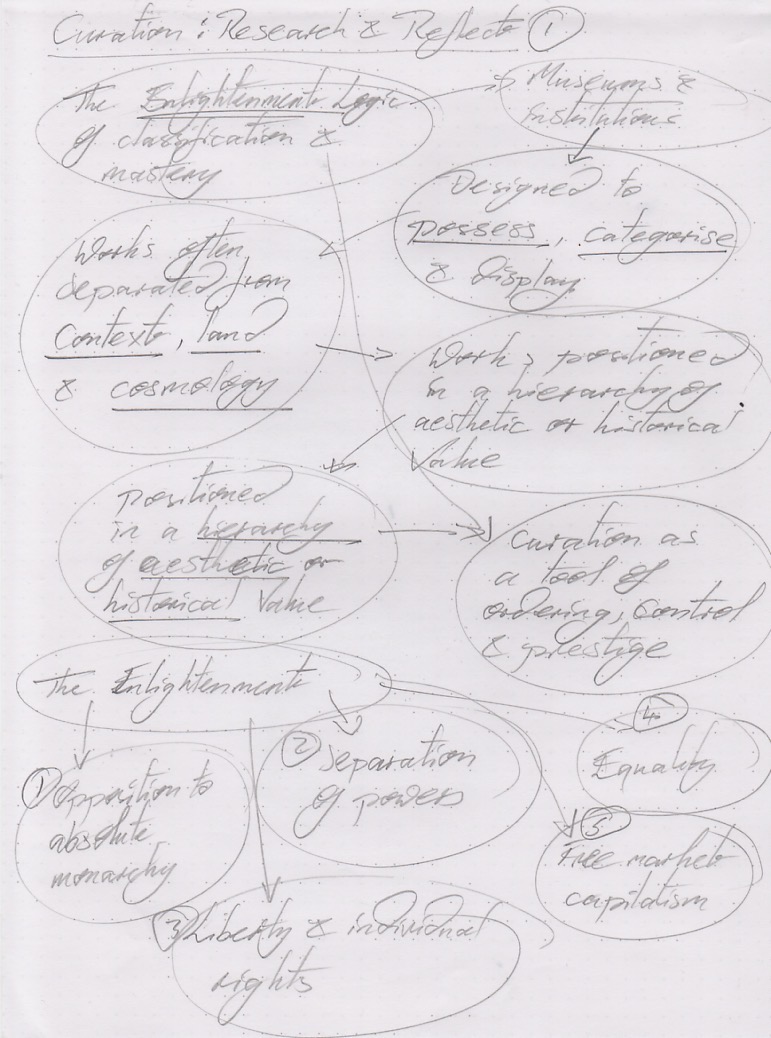 Curation: Research & Reflect ①
The Enlightenment Logic
of classification &
mastery
Museums &
institutions
Designed to
possess, categorise
& display
Works often
separated from
Context, land
& cosmology
Works positioned
in a hierarchy of
aesthetic or historical
Value
positioned
in a hierarchy
of aesthetic or
historical Value
Curation as
a tool of
ordering, control
& prestige
The Enlightenment
① Opposition to
absolute
monarchy
② Separation
of powers
③ Liberty & individual
rights
④
Equality
⑤
Free market
capitalism